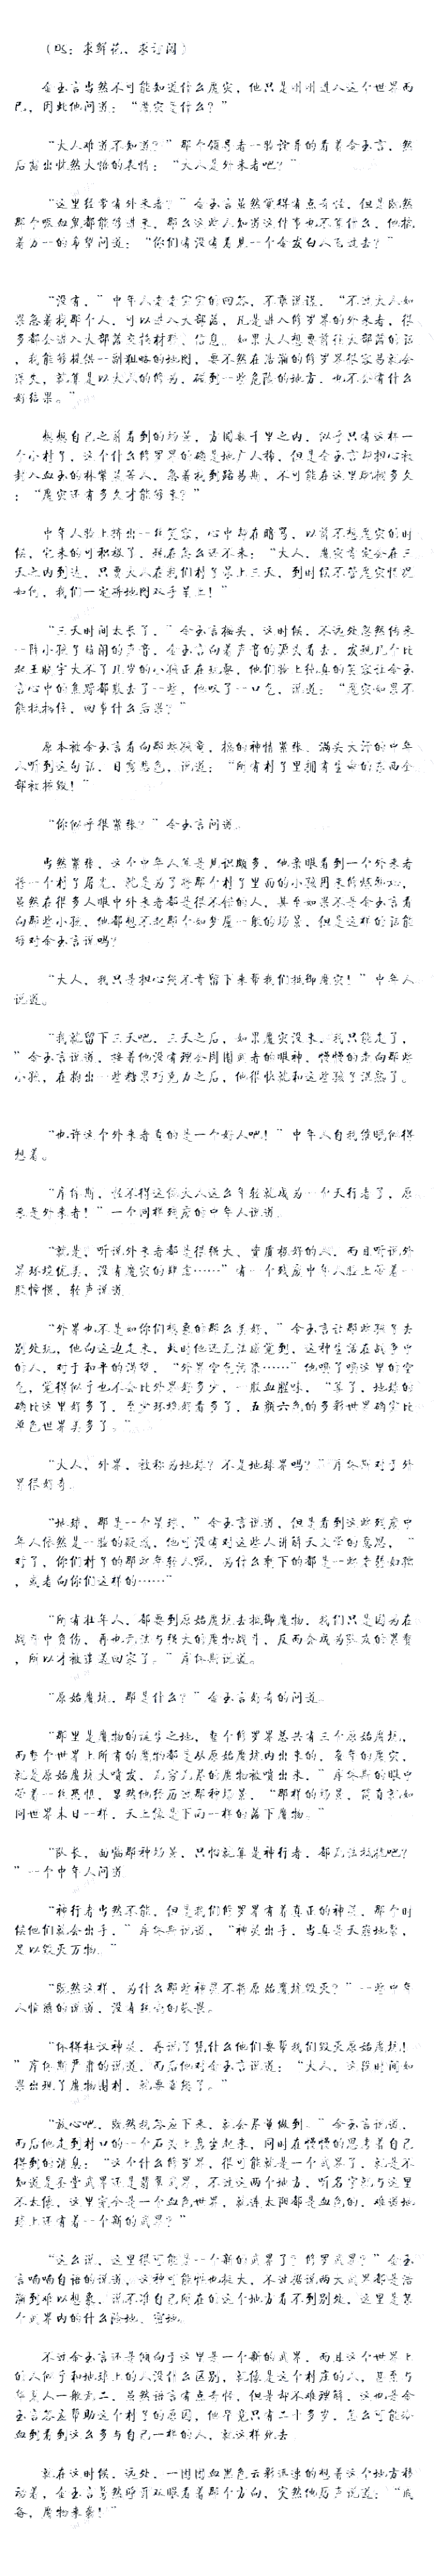 （PS：求鲜花、求订阅）
金玉言当然不可能知道什么魔灾，他只是刚刚进入这个世界而
已，因此他问道：“魔灾是什么？”
“大人难道不知道？”那个领导者一脸诧异的看着金玉言，然
后露出恍然大悟的表情：“大人是外来者吧？”
“这里经常有外来者？”金玉言虽然觉得有点奇怪，但是既然
那个吸血鬼都能够进来，那么这些人知道这件事也不算什么，他抱
着万一的希望问道：“你们有没有看见一个金发白人飞过去？”
“没有，”中年人老老实实的回答，不敢说谎，“不过大人如
果急着找那个人，可以进入大部落，凡是进入修罗界的外来者，很
多都会进入大部落交换材料、信息。如果大人想要前往大部落的话
，我能够提供一副粗略的地图，要不然在浩瀚的修罗界很容易就会
迷失，就算是以大人的修为，碰到一些危险的地方，也不会有什么
好结果。”
想想自己之前看到的场景，方圆数千里之内，似乎只有这样一
个小村子，这个什么修罗界的确是地广人稀，但是金玉言却担心被
：“魔灾还有多久才能够来？”
中年人脸上挤出一丝笑容，心中却在暗骂，以前不想魔灾的时
候，它来的可积极了，现在怎么还不来：“大人，魔灾肯定会在三
天之内到达，只要大人在我们村子呆上三天，到时候不管魔灾情况
如何，我们一定将地图双手呈上！”
“三天时间太长了，”金玉言摇头，这时候，不远处忽然传来
一阵小孩子嬉闹的声音，金玉言向着声音的源头看去，发现几个比
言心中的焦躁都散去了一些，他叹了一口气，说道：“魔灾如果不
能抵挡住，回事什么后果？”
原本被金玉言看向那些孩童，搞的神情紧张、满头大汗的中年
人听到这句话，目露悲色，说道：“所有村子里拥有生命的东西全
部被摧毁！”
“你似乎很紧张？”金玉言问道。
当然紧张，这个中年人算是见识颇多，他亲眼看到一个外来者
将一个村子屠光，就是为了将那个村子里面的小孩用来修炼邪功，
虽然在很多人眼中外来者都是很不错的人，甚至如果不是金玉言看
向那些小孩，他都想不起那个如梦魇一般的场景，但是这样的话能
够对金玉言说吗？
“大人，我只是担心您不肯留下来帮我们抵御魔灾！”中年人
说道。
“我就留下三天吧，三天之后，如果魔灾没来，我只能走了，
”金玉言说道，接着他没有理会周围武者的眼神，慢慢的走向那些
小孩，在掏出一些糖果巧克力之后，他很快就和这些孩子混熟了。
“也许这个外来者真的是一个好人吧！”中年人自我催眠似得
想着。
“库休斯，怪不得这位大人这么年轻就成为一个天行者了，原
来是外来者！”一个同样残废的中年人说道。
“就是，听说外来者都是很强大、资质极好的人，而且听说外
界环境优美，没有魔灾的肆虐……”有一个残废中年人脸上带着一
股憧憬，轻声说道。
“外界也不是如你们想象的那么美好，”金玉言让那些孩子去
别处玩，他向这边走来，此时他还无法感觉到，这种生活在战争中
的人，对于和平的渴望，“外界空气污染……”他嗅了嗅这里的空
气，觉得似乎也不会比外界好多少，一股血腥味，“算了，地球的
确比这里好多了，至少环境好看多了，五颜六色的多彩世界确实比
单色世界美多了。”
“大人，外界，被称为地球？不是地球界吗？”库休斯对于外
界很好奇。
“地球，那是一个星球，”金玉言说道，但是看到这些残废中
年人依然是一脸的疑惑，他可没有对这些人讲解天文学的意思，“
对了，你们村子的那些年轻人呢，为什么剩下的都是一些老弱妇孺
，或者向你们这样的……”
“所有壮年人，都要到原始魔坑去抵御魔物，我们只是因为在
战斗中负伤，再也无法与强大的魔物战斗，反而会成为队友的累赘
，所以才被谴送回家了。”库休斯说道。
“原始魔坑，那是什么？”金玉言好奇的问道。
“那里是魔物的诞生之地，整个修罗界总共有三个原始魔坑，
而整个世界上所有的魔物都是从原始魔坑内出来的，每年的魔灾，
就是原始魔坑大喷发，无穷无尽的魔物被喷出来，”库休斯的眼中
带着一丝恐惧，显然他经历过那种场景，“那样的场景，简直就如
同世界末日一样，天上像是下雨一样的落下魔物。”
“队长，面临那种场景，只怕就算是神行者，都无法抵挡吧？
”一个中年人问道。
“神行者当然不能，但是我们修罗界有着真正的神灵，那个时
候他们就会出手，”库休斯说道，“神灵出手，当真是天崩地裂，
足以毁灭万物。”
“既然这样，为什么那些神灵不将原始魔坑毁灭？”一些中年
人愤懑的说道，没有丝毫的敬畏。
“休得枉议神灵，再说了凭什么他们要帮我们毁灭原始魔坑！
”库休斯严肃的说道，而后他对金玉言说道：“大人，这段时间如
果出现了魔物谢村，就要麻烦了。”
“放心吧，既然我答应下来，就会尽量做到。”金玉言说道，
而后他走到村口的一个石头上盘坐起来，同时在慢慢的思考着自己
得到的消息：“这个什么修罗界，很可能就是一个武界了，就是不
不太像，这里完全是一个血色世界，就连太阳都是血色的，难道地
球上还有着一个新的武界？”
“这么说，这里很可能是一个新的武界了？修罗武界？”金玉
言喃喃自语的说道，这种可能性也极大，不过据说两大武界都是浩
瀚到难以想象，说不准自己所在的这个地方看不到别处，这里是某
个武界内的什么险地、密地。
不过金玉言还是倾向于这里是一个新的武界，而且这个世界上
的人似乎和地球上的人没什么区别，就像是这个村庄的人，甚至与
华夏人一般无二，虽然语言有点奇怪，但是却不难理解，这也是金
玉言答应帮助这个村子的原因，他毕竟只有二十多岁，怎么可能冷
血到看到这么多与自己一样的人，就这样死去。
就在这时候，远处，一团团血黑色云彩迅速的想着这个地方移
动着，金玉言忽然睁开双眼看着那个方向，突然他厉声说道：“戒
备，魔物来袭！”